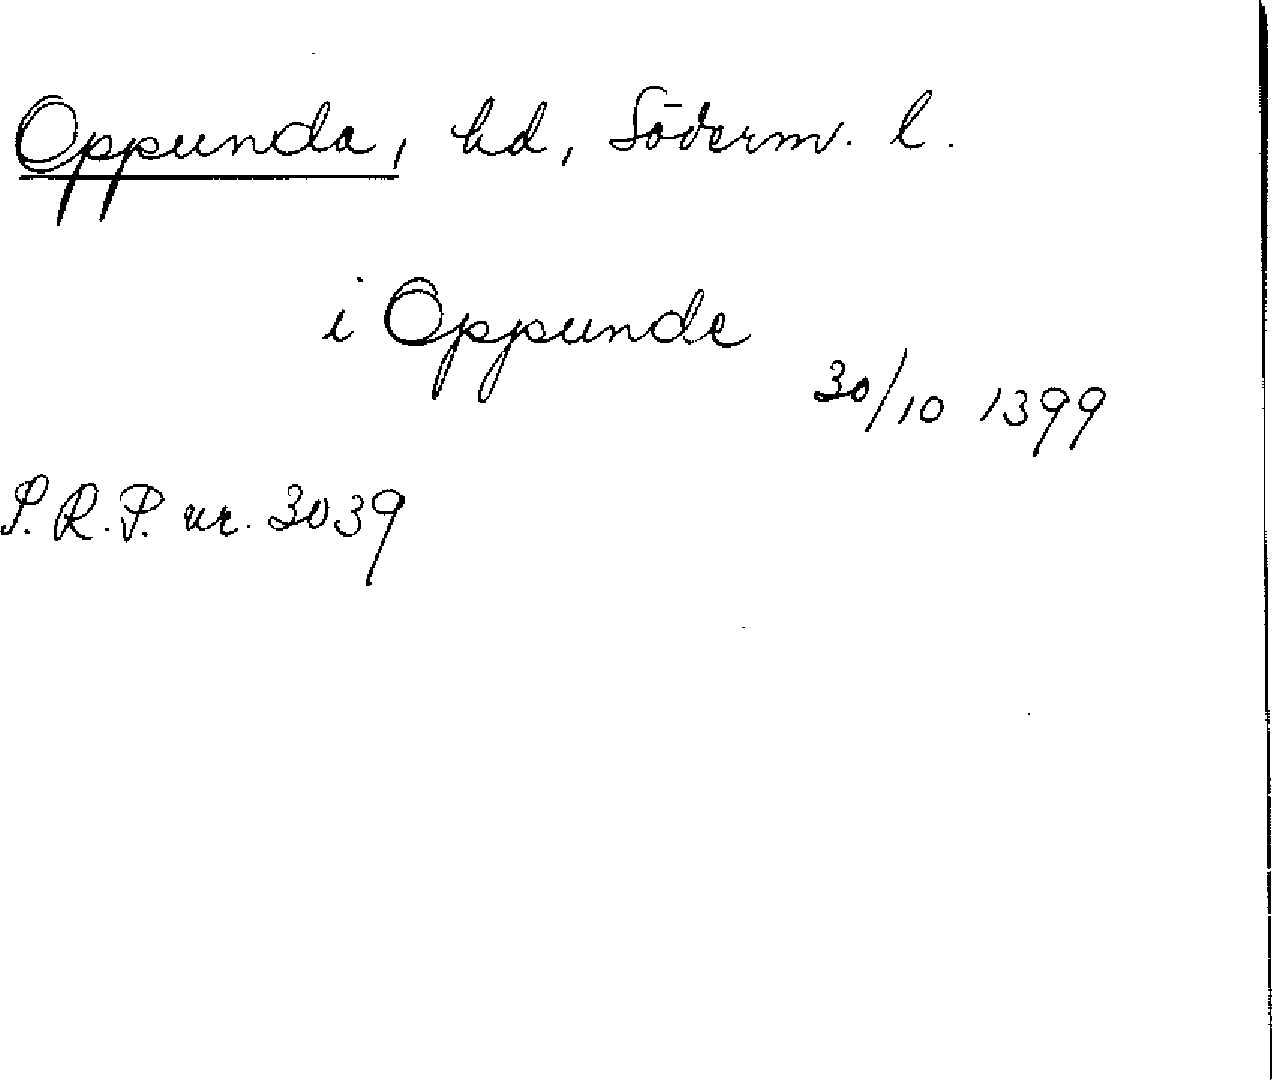 Oppunda, hd, Söderm. l.
i Oppunde
30/10 1399
S.R.P. nr. 3039